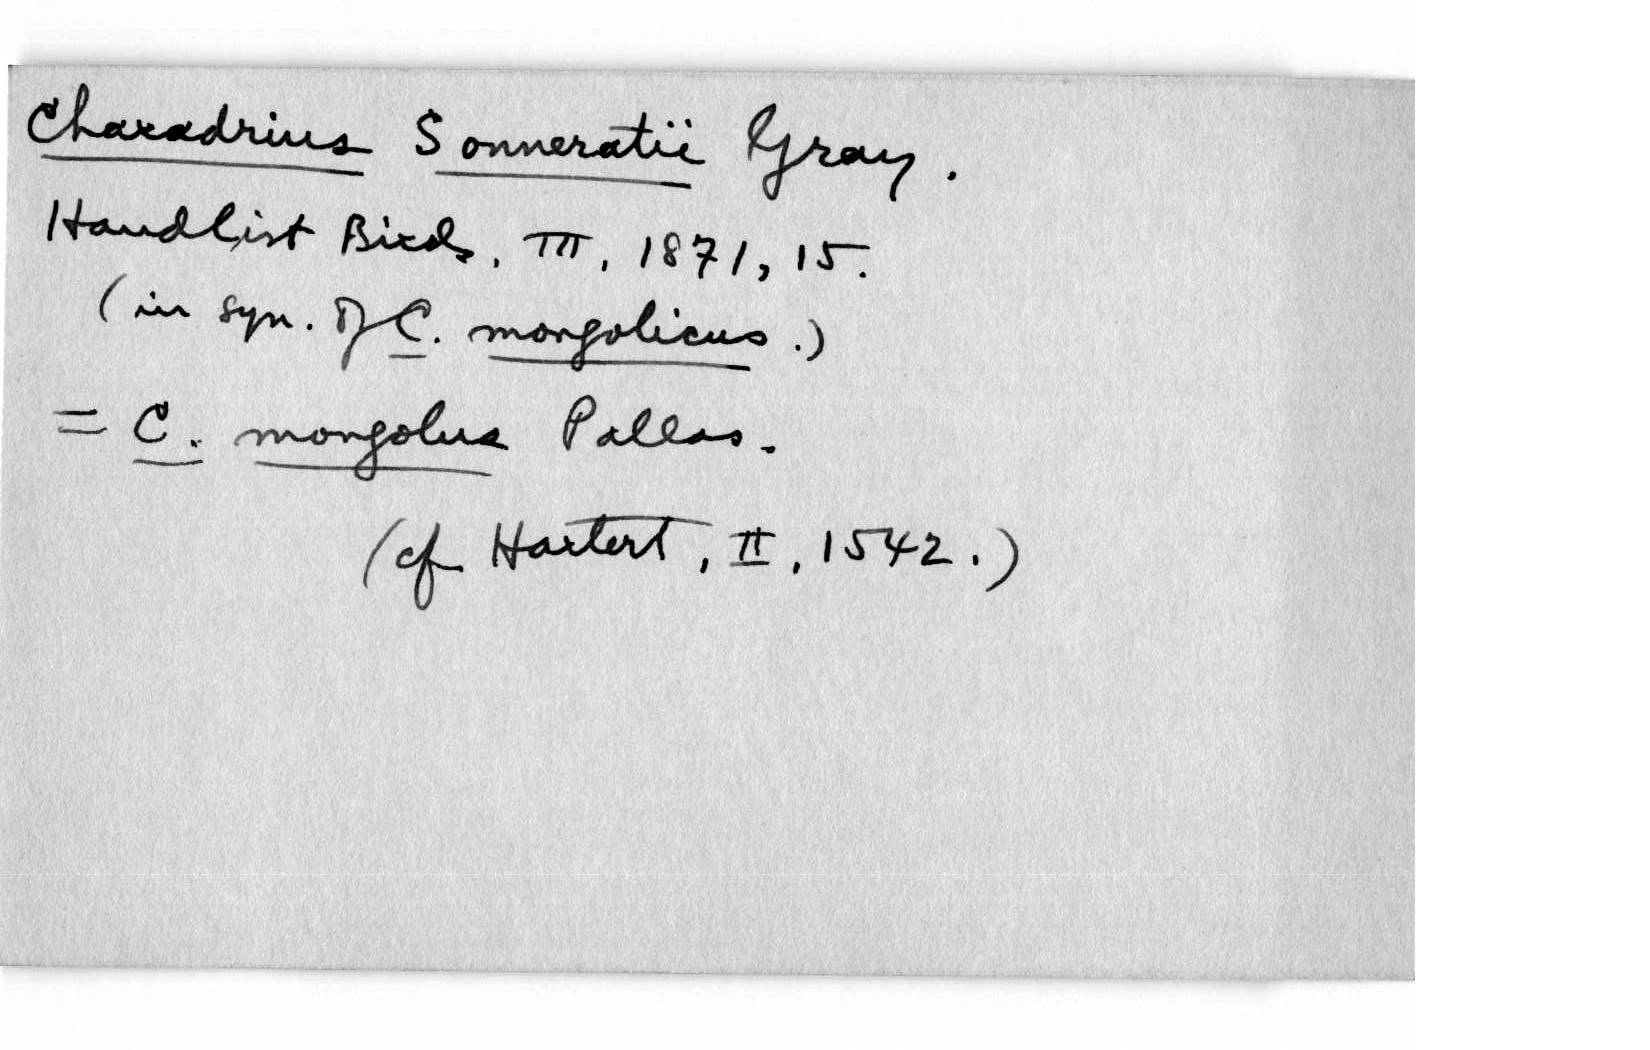 Charadrius Sonneratii Gray.
Handlist Birds, III, 1871, 15.
(in syn. of C. mongolicus.)
= C. mongolus Pallas.
(cf Hartert, II, 1542.)